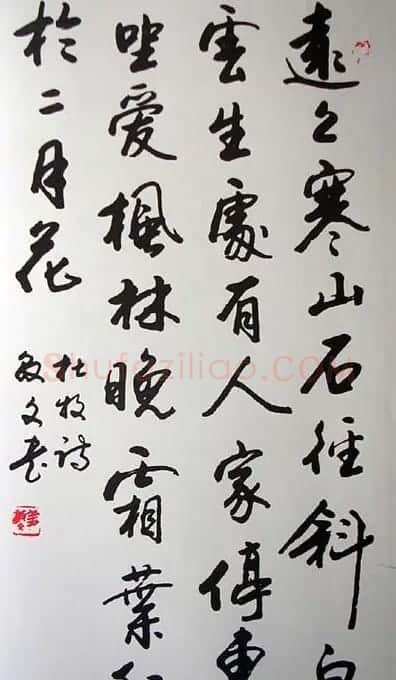 遠上寒山石徑斜白
雲生處有人家停車
坐爱楓林晚霜葉紅
於二月花
杜牧詩
敏文书
Shufaziliao.com